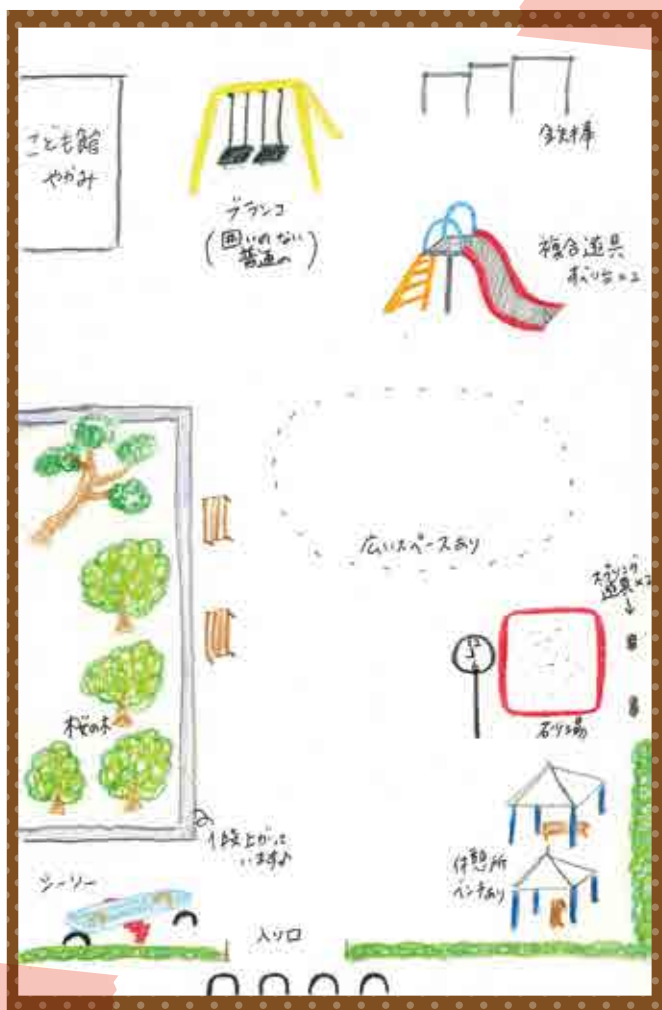 こども館
やかみ
ブランコ
(囲いのない
普通の)
鉄棒
複合遊具
すべり台×2
広いスペースあり
スプリング
遊具×2
↓
砂場
桜の木
1段上がって
います♪
シーソー
休憩所
ベンチあり
入り口